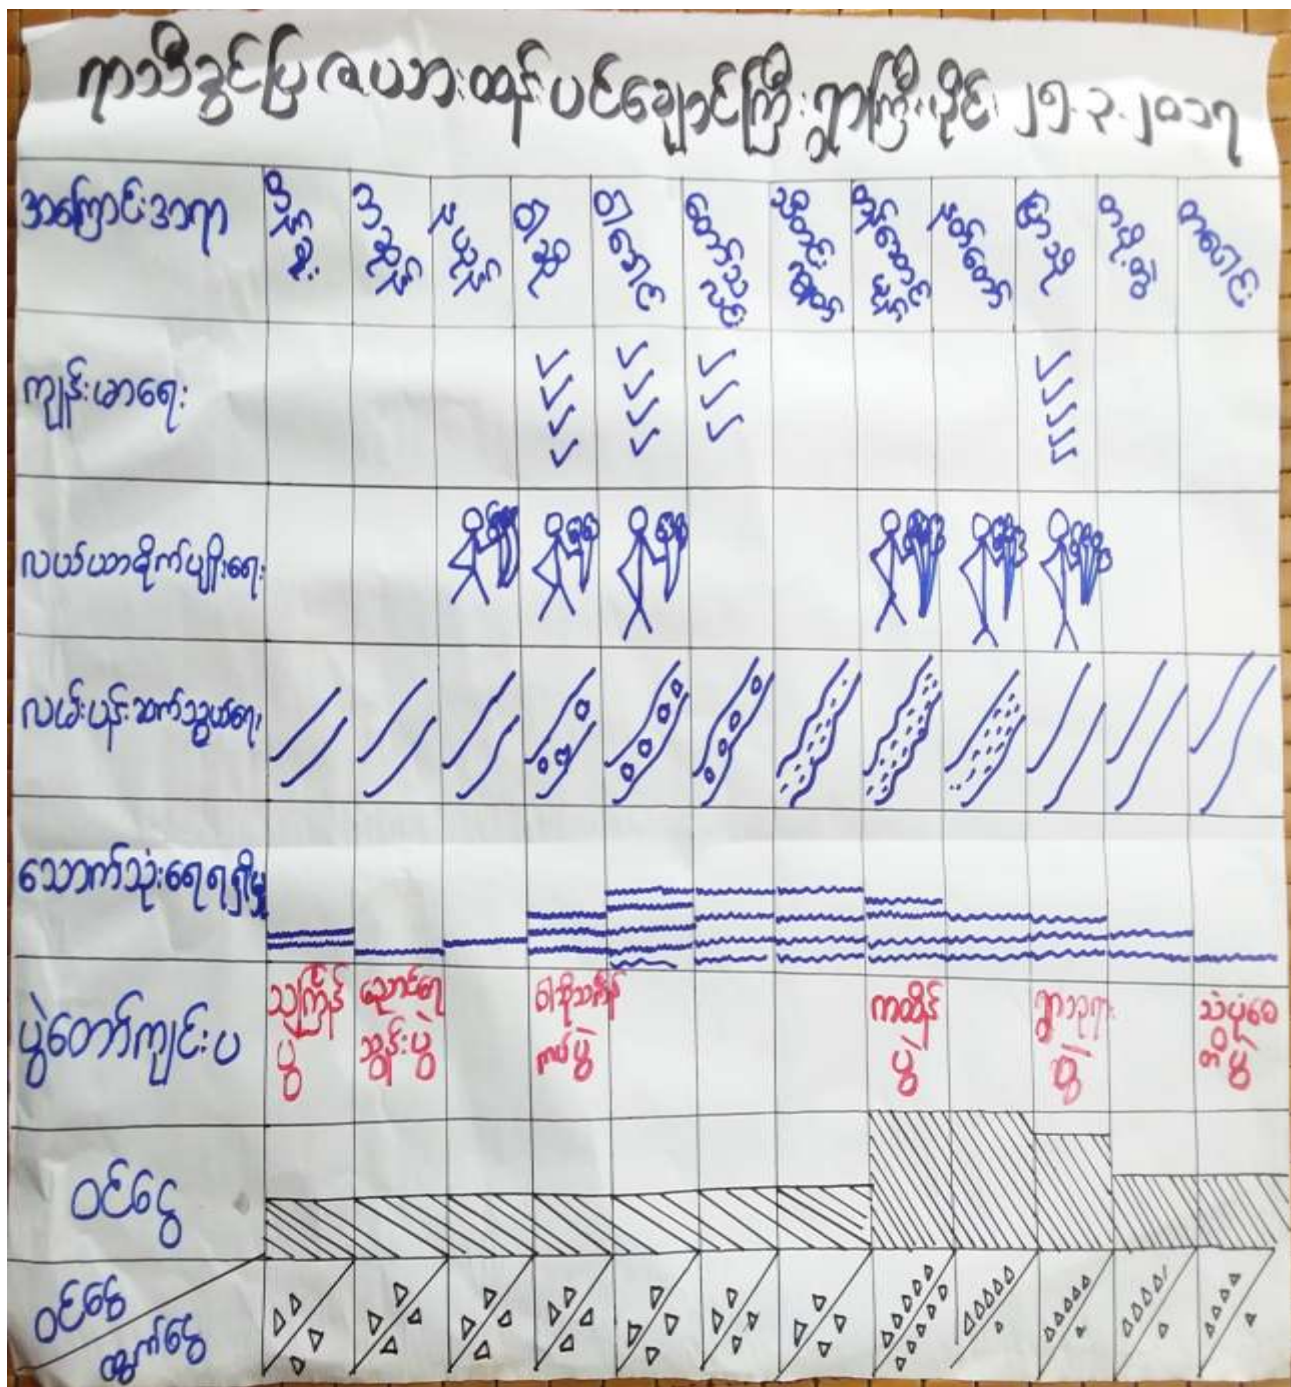 ရာသီခွင်ပြ ဇယား ထန်းပင်ချောင်ကြီး ရွာကြီးပိုင်း ၂၅.၃.၂၀၁၇
အကြောင်းအရာ တန်ခူး ကဆုန် နယုန် ဝါဆို ဝါခေါင် တော်သလင်း သီတင်းကျွတ် တန်ဆောင်မုန်း နတ်တော် ပြာသို တပို့တွဲ တပေါင်း
ကျန်းမာရေး
လယ်ယာစိုက်ပျိုးရေး
လမ်းပန်းဆက်သွယ်ရေး
သောက်သုံးရေရရှိမှု
ပွဲတော်ကျင်းပ သင်္ကြန်ပွဲ ညောင်ရေသွန်းပွဲ ဝါဆိုသင်္ကန်းကပ်ပွဲ ကထိန်ပွဲ ရွာဘုရားပွဲ သဲပုံစေတီပွဲ
ဝင်ငွေ
ဝင်ငွေ
ထွက်ငွေ